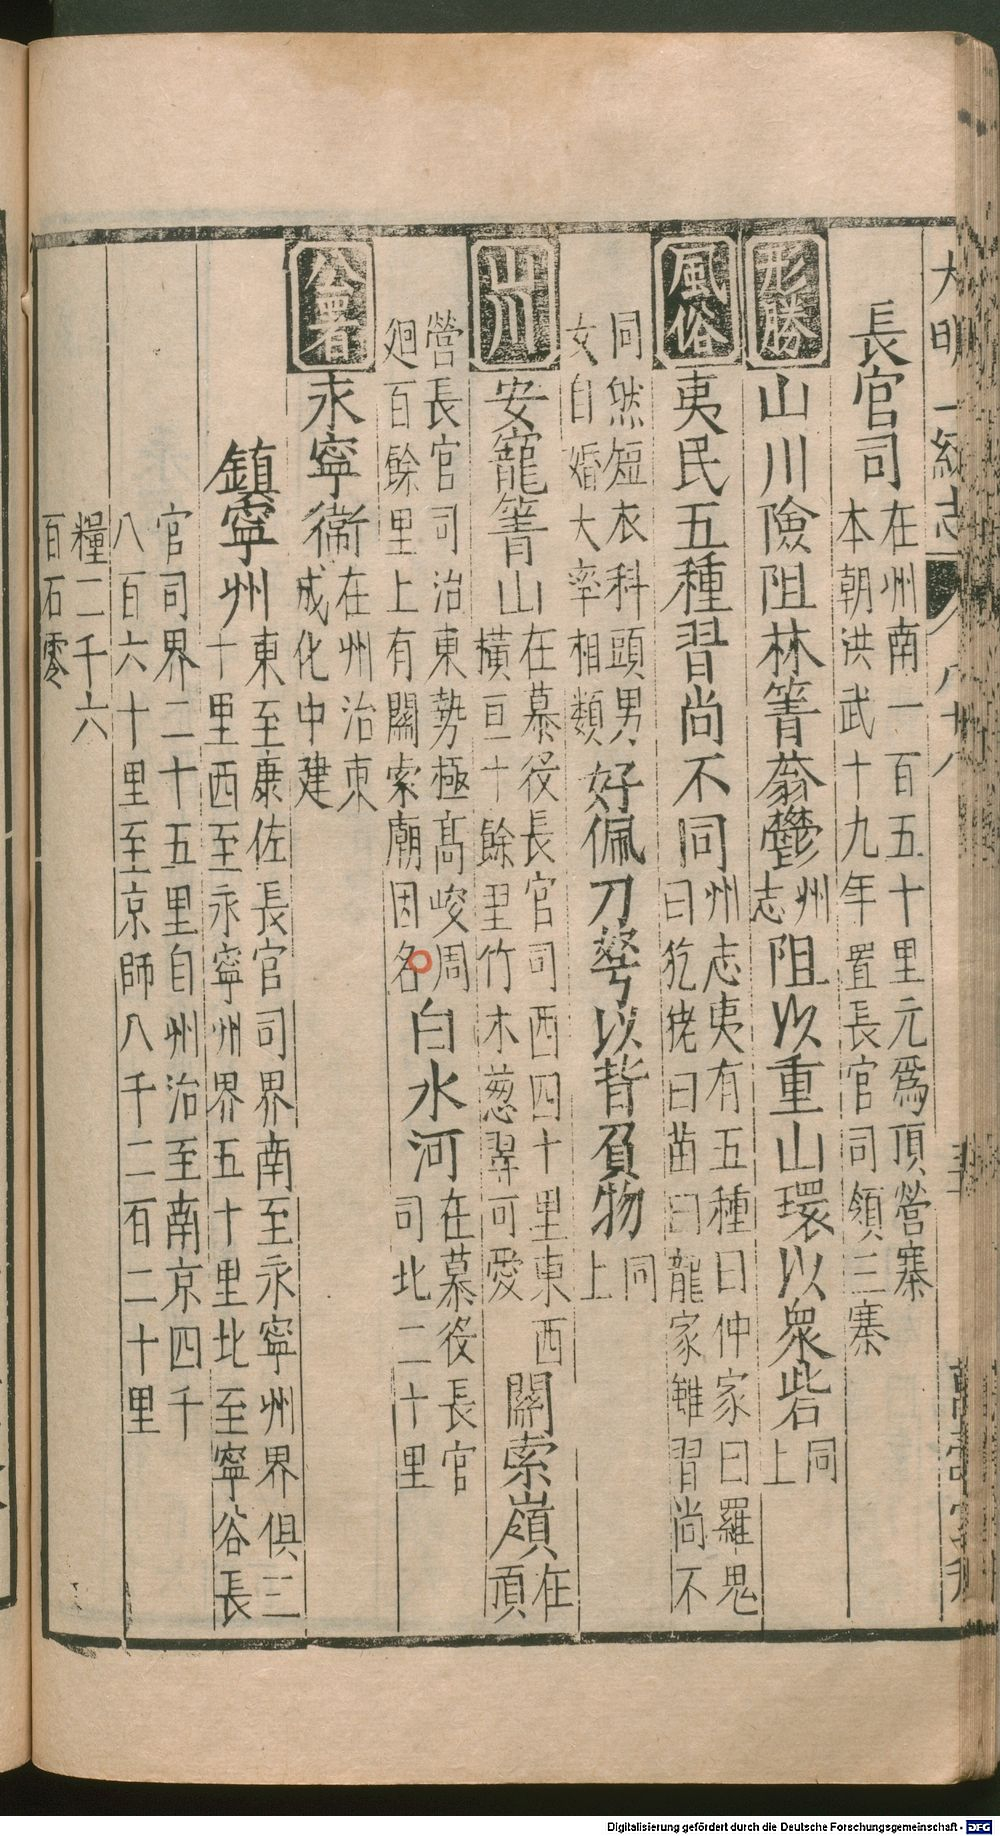 大明一統志 八十八
長官司
在州南一百五十里元為頂營寨
本朝洪武十九年置長官司領三寨
形勝
山川險阻林箐蓊鬱
州
志
阻以重山環以衆砦
同
上
風俗
夷民五種習尚不同
州志夷有五種曰仲家曰羅鬼
曰犵狫曰苗曰龍家雖習尚不
同然短衣科頭男
女自婚大率相類
好佩刀弩以背負物
同
上
山川
安寵箐山
在慕役長官司西四十里東西
橫亘十餘里竹木葱翠可愛
關索嶺
在
頂
營長官司治東勢極高峻周
廻百餘里上有關索廟因名
白水河
在慕役長官
司北二十里
公署
永寧衞
在州治東
成化中建
鎮寧州
東至康佐長官司界南至永寧州界俱三
十里西至永寧州界五十里北至寧谷長
官司界二十五里自州治至南京四千
八百六十里至京師八千二百二十里
糧二千六
百石零
Digitalisierung gefördert durch die Deutsche Forschungsgemeinschaft - DFG